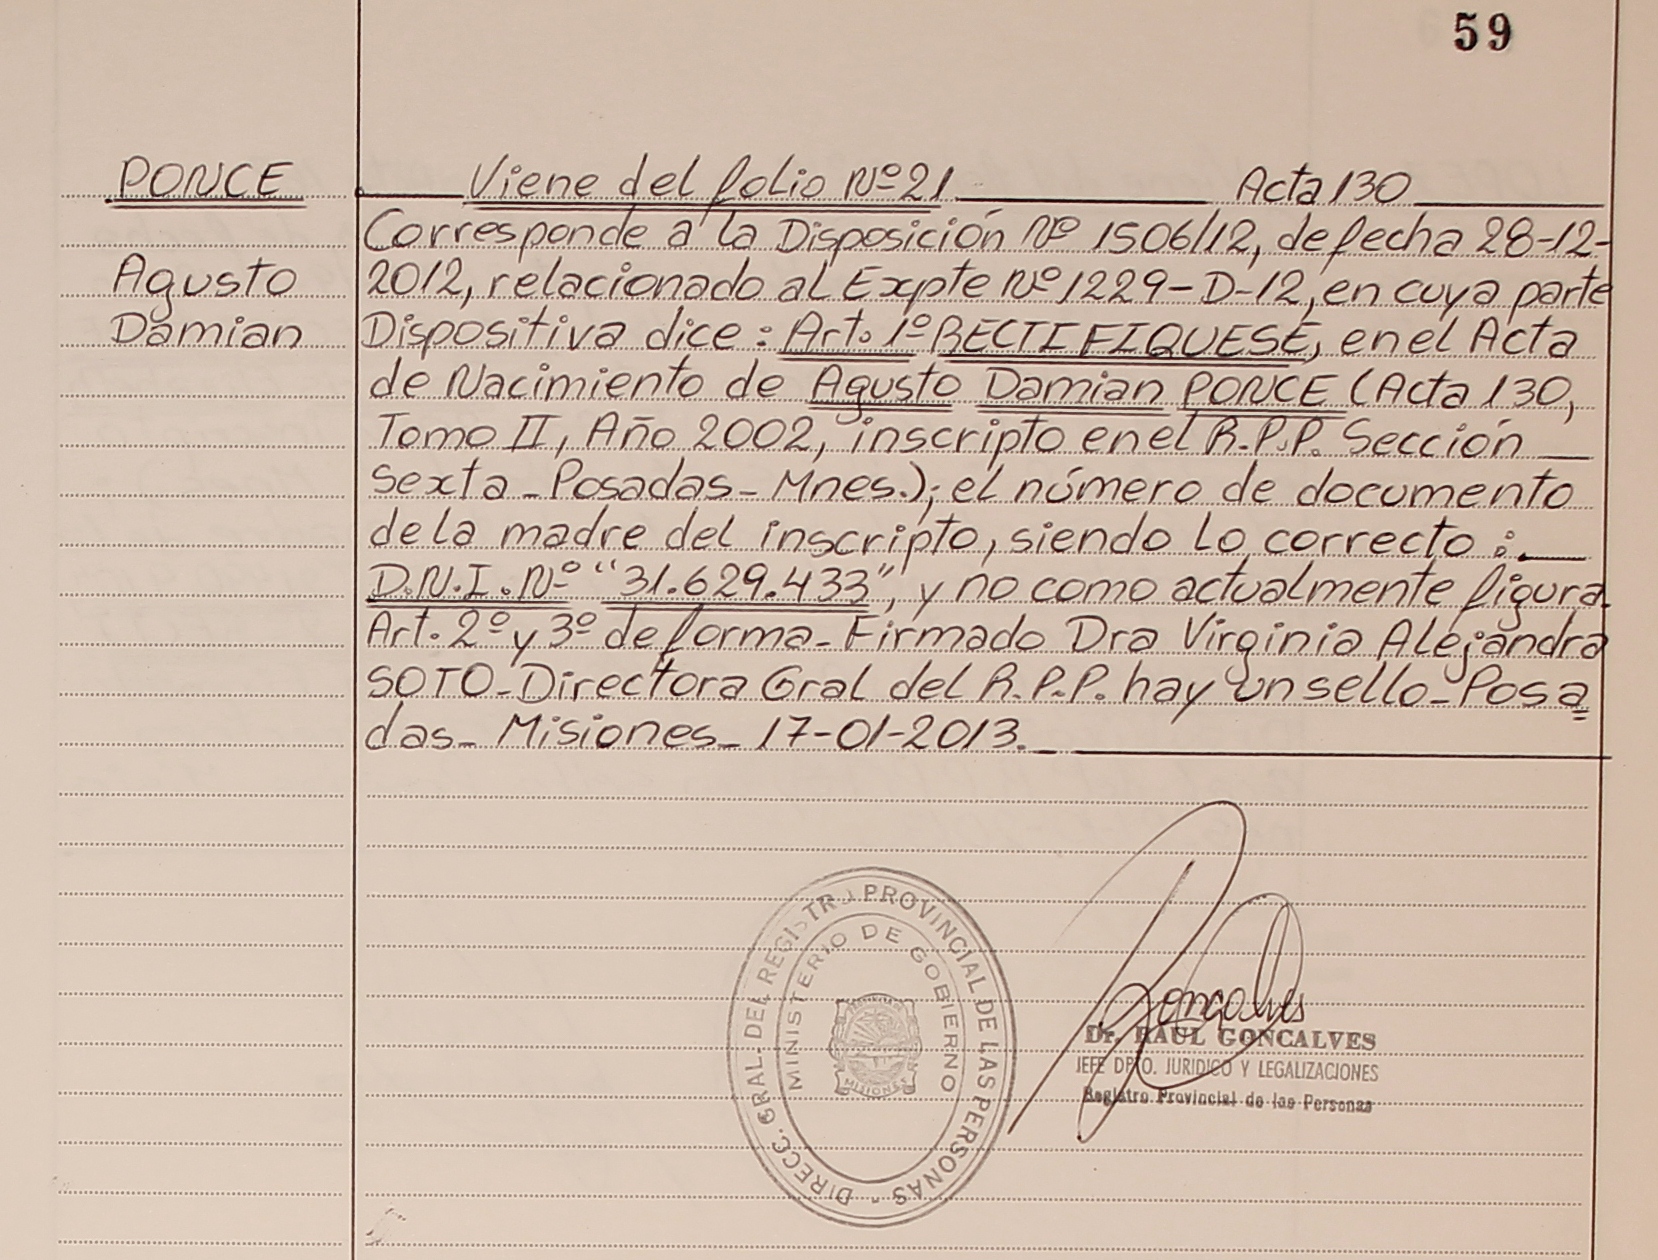 59
PONCE
Agusto
Damian
Viene del folio Nº21 Acta 130
Corresponde a la Disposición Nº 1506/12, de fecha 28-12-
2012, relacionado al Expte Nº 1229-D-12, en cuya parte
Dispositiva dice: Art. 1º RECTIFIQUESE, en el Acta
de Nacimiento de Agusto Damian PONCE (Acta 130,
Tomo II, Año 2002, inscripto en el R.P.P. Sección
Sexta - Posadas - Mnes.); el número de documento
de la madre del inscripto, siendo lo correcto:
D.N.I. Nº "31.629.433", y no como actualmente figura.
Art. 2º y 3º de forma - Firmado Dra Virginia Alejandra
SOTO - Directora Gral del R.P.P. hay un sello - Posa
das - Misiones - 17-01-2013.
DIRECC. GRAL. DEL REGISTRO PROVINCIAL DE LAS PERSONAS -
MINISTERIO DE GOBIERNO
MISIONES
Goncalves
Dr. RAUL GONCALVES
JEFE DPTO. JURIDICO Y LEGALIZACIONES
Registro Provincial de las Personas